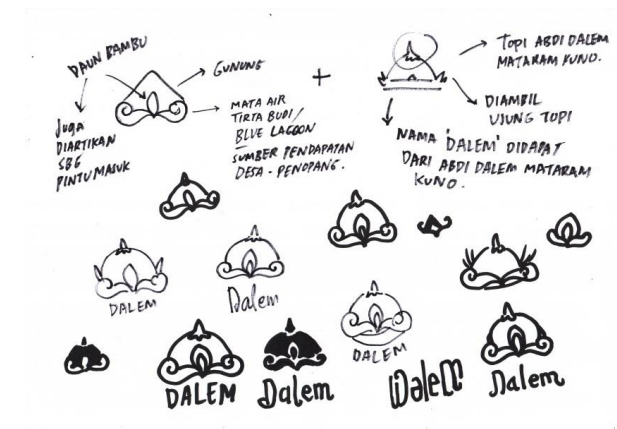 DAUN BAMBU
Juga
DIARTIKAN
SBG
PINTU MASUK
GUNUNG
MATA AIR
TIRTA BUDI/
BLUE LAGOON
SUMBER PENDAPATAN
DESA - PENOPANG.
+
TOPI ABDI DALEM
MATARAM KUNO.
DIAMBIL
UJUNG TOPI
NAMA 'DALEM' DIDAPAT
DARI ABDI DALEM MATARAM
KUNO.
DALEM
Dalem
DALEM
DALEM
Dalem
Dalem
Dalem